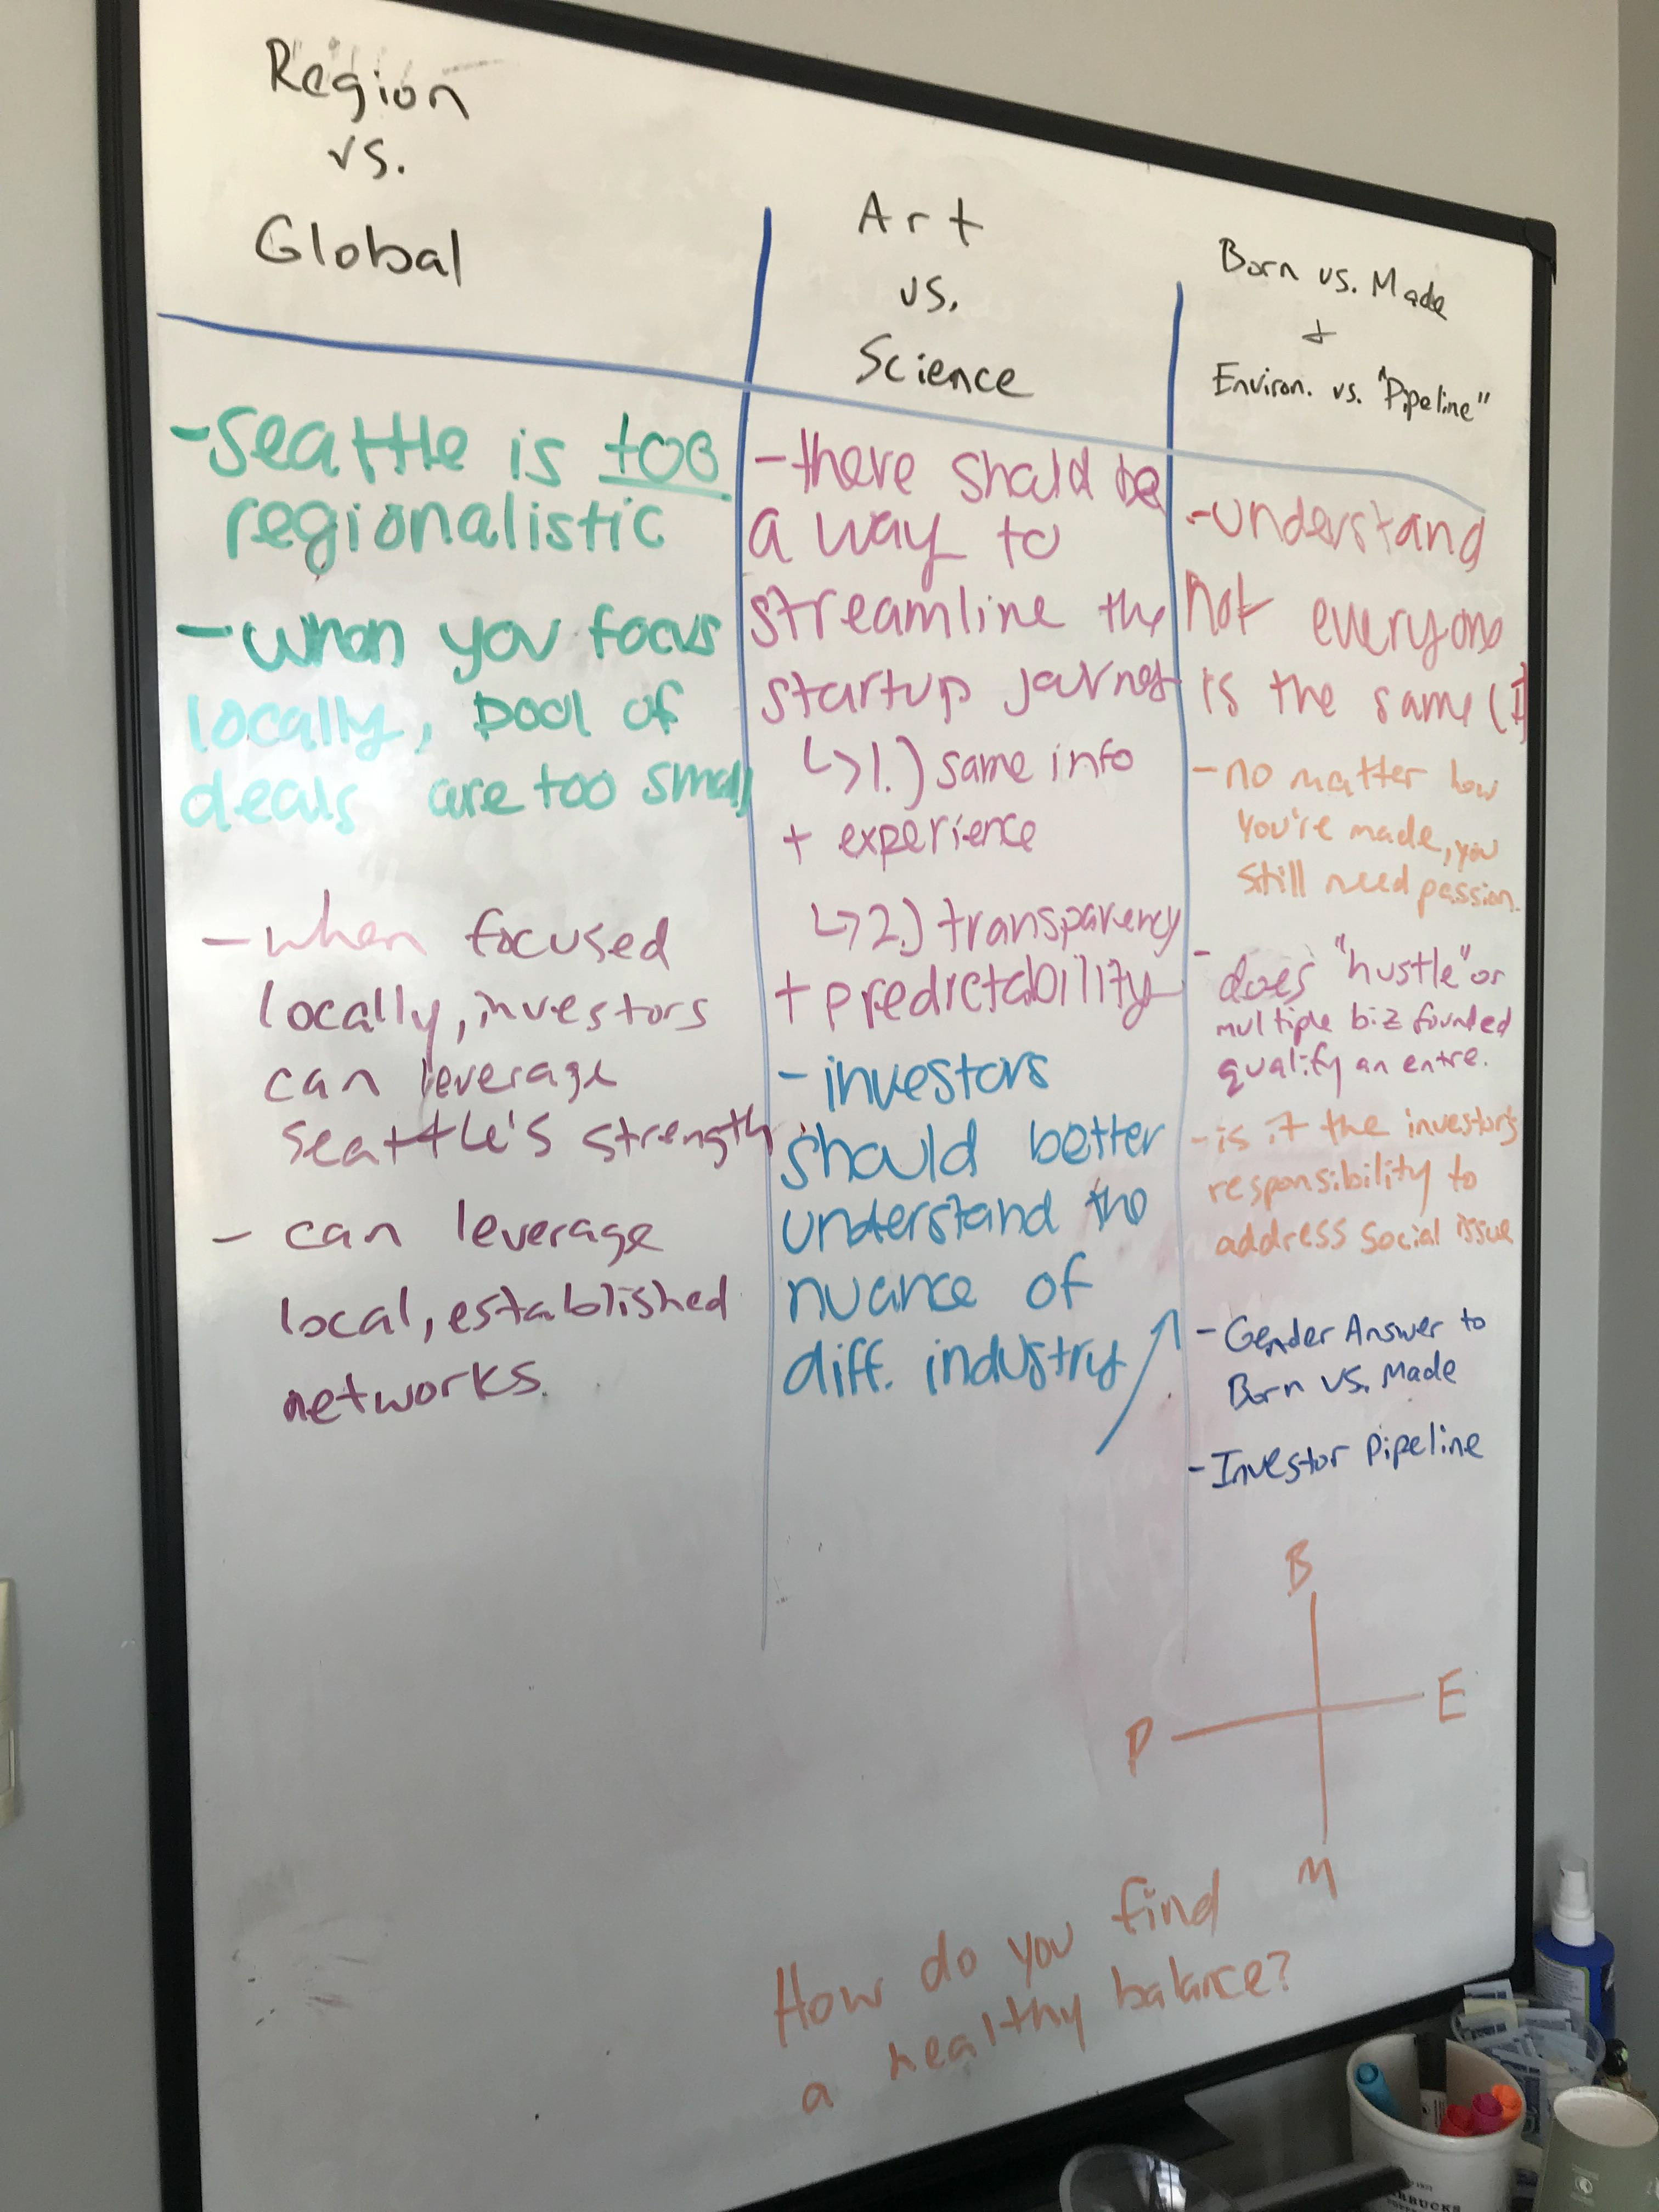 Region
vs.
Global
- seattle is too
regionalistic
- when you focus
locally, pool of
deals are too small
- when focused
locally, investors
can leverage
seattle's strength
- can leverage
local, established
networks.
Art
vs.
Science
- there should be
a way to
streamline the
startup journey
↳ 1.) same info
+ experience
↳ 2.) transparency
+ predictability
- investors
should better
understand the
nuance of
diff. industry
Born vs. Made
+
Environ. vs. "Pipeline"
- understand
not everyone
is the same (I)
- no matter how
you're made, you
still need passion.
- does "hustle" or
multiple biz founded
qualify an entre.
- is it the investor's
responsibility to
address social issue
- Gender Answer to
Born vs. Made
- Investor pipeline
B
P
E
M
How do you find
a healthy balance?